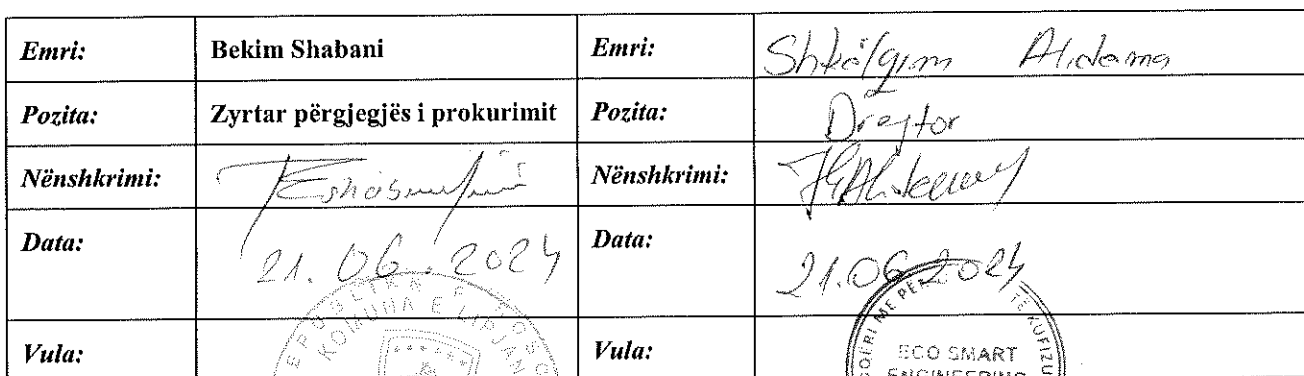 Emri: Bekim Shabani Emri: Shkëlqim Alidema
Pozita: Zyrtar përgjegjës i prokurimit Pozita: Drejtor
Nënshkrimi: Nënshkrimi:
Data: 21.06.2024 Data: 21.06.2024
Vula: Vula:
KOMUNA E LIPJAN
ECO SMART
ENGINEERING